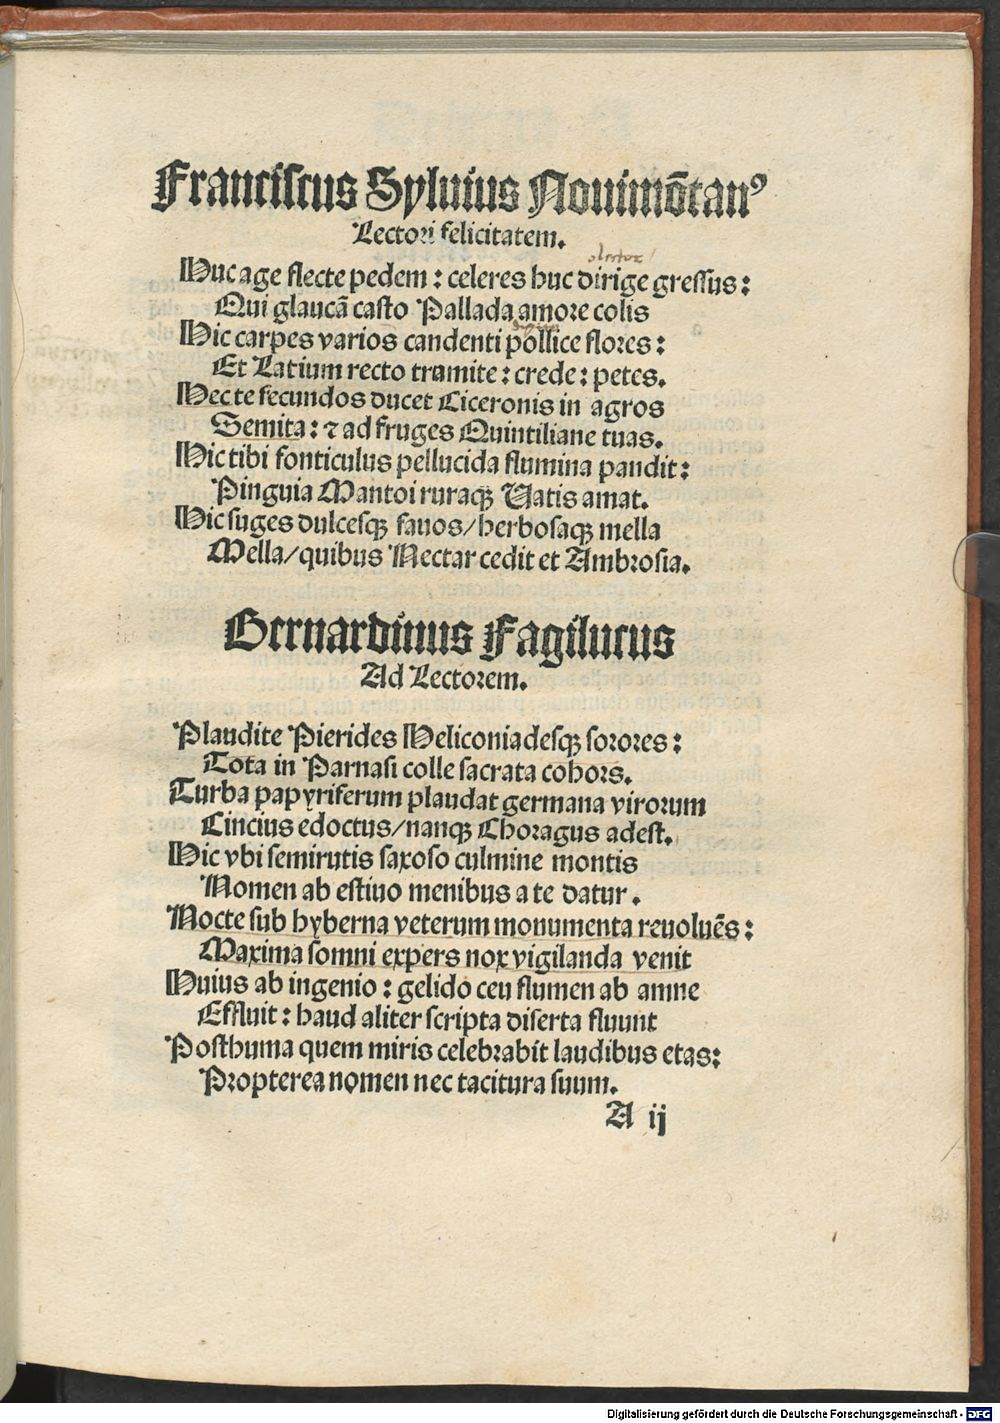 Franciscus Syluius Nouimōtanꝰ
Lectori felicitatem.
o lector
Huc age flecte pedem: celeres huc dirige gressus:
Qui glaucā casto Pallada amore colis
Hic carpes varios candenti pollice flores:
Et Latium recto tramite: crede: petes.
Hec te fecundos ducet Ciceronis in agros
Semita: ⁊ ad fruges Quintiliane tuas.
Hic tibi fonticulus pellucida flumina pandit:
Pinguia Mantoi ruraqꝫ Vatis amat.
Hic suges dulcesqꝫ fauos/herbosaqꝫ mella
Mella/quibus Nectar cedit et Ambrosia.
Bernardinus Fagilucus
Ad Lectorem.
Plaudite Pierides Heliconiadesqꝫ sorores:
Tota in Parnasi colle sacrata cohors.
Turba papyriferum plaudat germana virorum
Cincius edoctus/nanqꝫ Choragus adest.
Hic vbi semirutis saxoso culmine montis
Nomen ab estiuo menibus a te datur.
Nocte sub hyberna veterum monumenta reuoluēs:
Maxima somni expers nox vigilanda venit
Huius ab ingenio: gelido ceu flumen ab amne
Effluit: haud aliter scripta diserta fluunt
Posthuma quem miris celebrabit laudibus etas:
Propterea nomen nec tacitura suum.
A ij
Digitalisierung gefördert durch die Deutsche Forschungsgemeinschaft - DFG